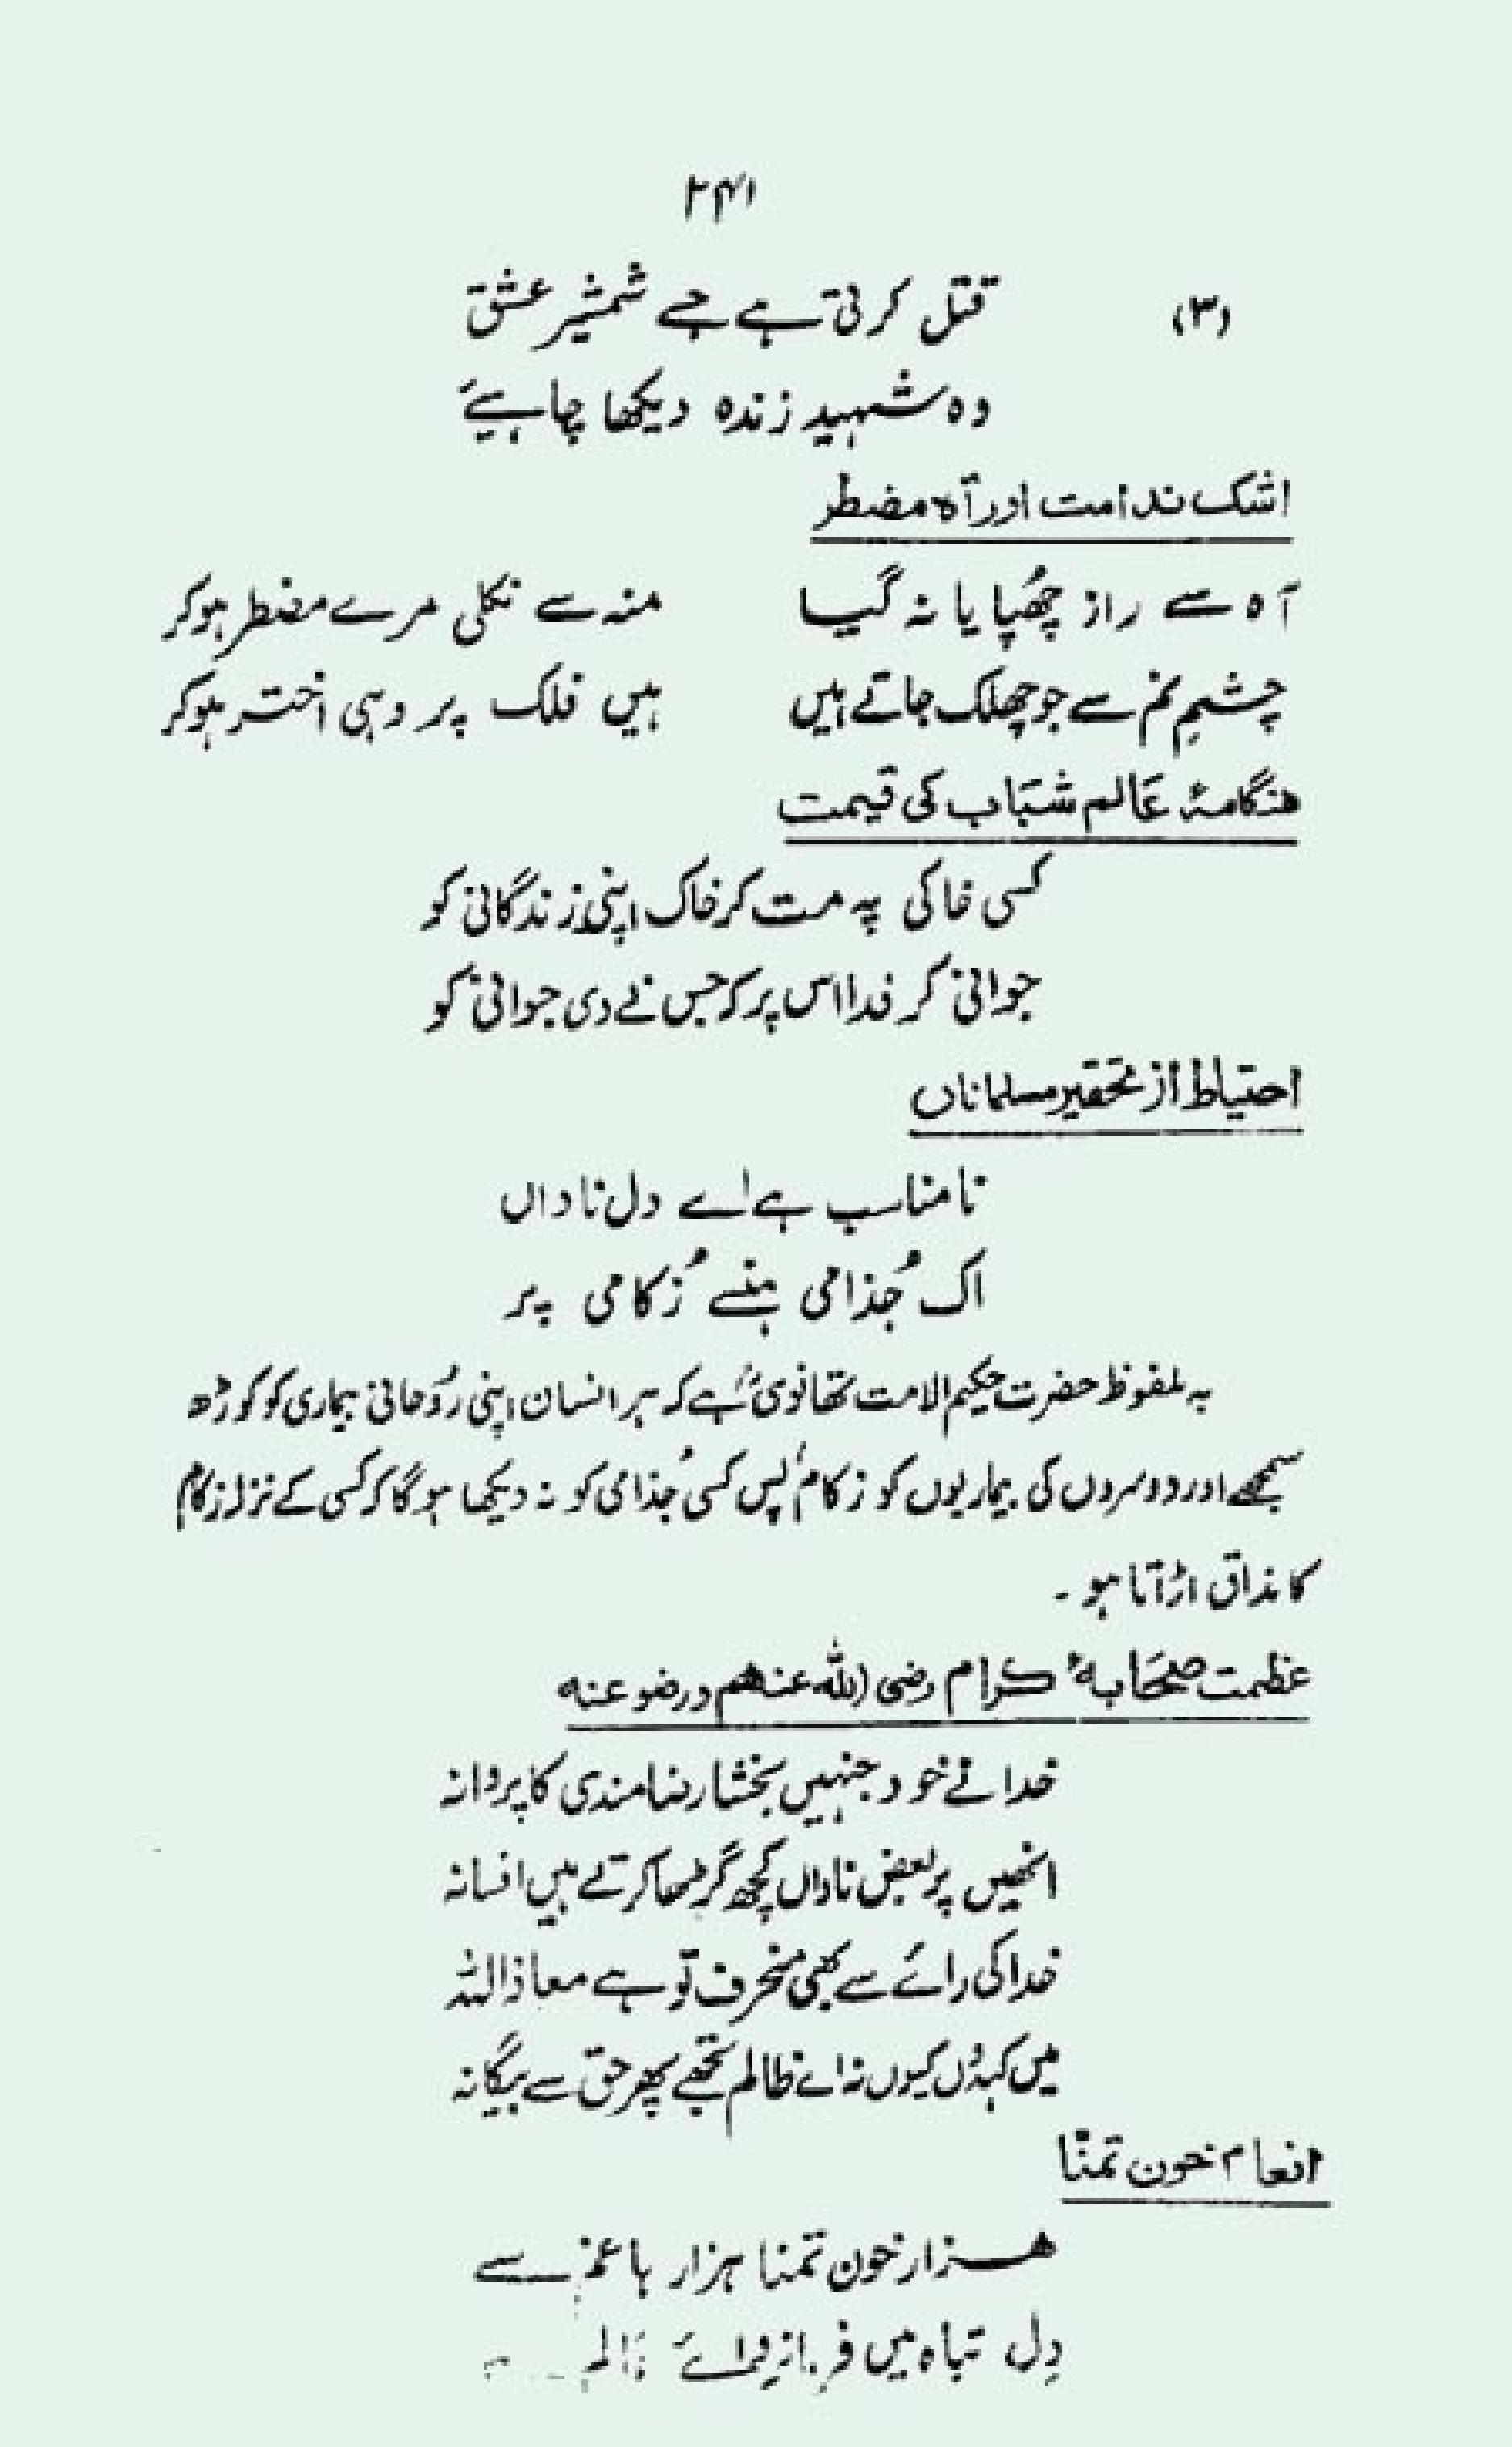 ۲۴۱
(۳) قتل کرتی ہے جسے شمشیر عشق
وہ شہید زندہ دیکھا چاہیئے
اشک ندامت اور آہ مضطر
آہ سے راز چھُپایا نہ گیا منہ سے نکلی مرے مضطر ہوکر
چشمِ نم سے جو چھلک جاتے ہیں ہیں فلک پر وہی اختر ہوکر
ھنگامۂ عَالم شبَاب کی قیمت
کسی خاکی پہ مت کر خاک اپنی زندگانی کو
جوانی کر فدا اس پر کہ جس نے دی جوانی کو
احتیاط از تحقیر مسلماناں
نامناسب ہے اے دل ناداں
اک جُذامی ہنسے زُکامی پر
یہ ملفوظ حضرت حکیم الامت تھانویؒ ہے کہ ہر انسان اپنی رُوحانی بیماری کو کوڑھ
سمجھے اور دوسروں کی بیماریوں کو زکام پس کسی جُذامی کو نہ دیکھا ہوگا کہ کسی کے نزلہ زکام
کا مذاق اڑاتا ہو ۔
عظمت صحَابہؓ کرام رضی اللہ عنھم و رضو عنہ
خدا نے خود جنہیں بخشا رضامندی کا پروانہ
انھیں پر بعض ناداں کچھ گڑھا کرتے ہیں افسانہ
خدا کی رائے سے بھی منحرف تو ہے معاذ اللہ
میں کہدُوں کیوں نہ اے ظالم تجھے پھر حق سے بیگانہ
انعام خون تمنّا
ھزار خون تمنا ہزار ہا غم سے
دِل تباہ میں فرمانروائے